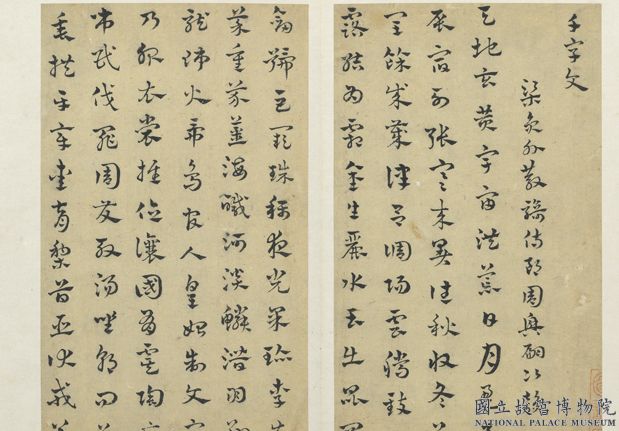 千字文
梁員外散騎侍郎周興嗣次韻
天地玄黃宇宙洪荒日月盈
辰宿列張寒來暑往秋收冬
閏餘成歲律呂調陽雲騰致
露結為霜金生麗水玉出崑
劍號巨闕珠稱夜光果珍李
菜重芥薑海鹹河淡鱗潛羽翔
龍師火帝鳥官人皇始制文字
乃服衣裳推位讓國有虞陶
弔民伐罪周發殷湯坐朝問
垂拱平章愛育黎首臣伏戎
國立故宮博物院
NATIONAL PALACE MUSEUM